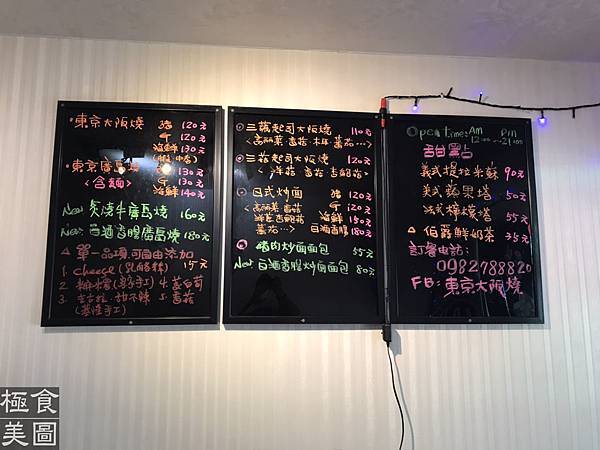 東京大阪燒 豬 120元
牛 120元
海鮮 130元
東京廣島燒 130元
<含麵> 牛 130元
海鮮 140元
New 炙燒牛廣島燒 160元
New 白酒香腸廣島燒 180元
△單一品項,可自由添加
1. cheese(乳酪絲) 15元
3. 吉古拉、甜不辣 5.香菇
(基隆手工)
◎三菇起司大阪燒 110元
<高麗菜 香菇 木耳 蕃茄...>
◎三菇起司大阪燒 120元
<洋菇 香菇 杏鮑菇>
◎日式炒麵 豬 120元
海鮮 150元
蕃茄...> 白酒香腸 180元
◎豬肉炒麵麵包 55元
New 白酒香腸炒麵麵包 80元
Open time: Am Pm
12:00~21:00
甜點
義式提拉米蘇 90元
美式蘋果塔 50元
法式檸檬塔 55元
△伯爵鮮奶茶 35元
訂餐電話:
0982788820
FB:東京大阪燒
極食
美圖